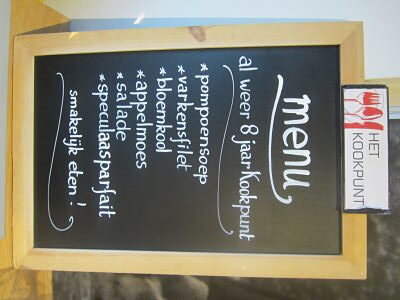 menu
al weer 8 jaar Kookpunt
*pompoensoep
*varkensfilet
*bloemkool
*appelmoes
*salade
*speculaasparfait
smakelijk eten!
HET
KOOKPUNT